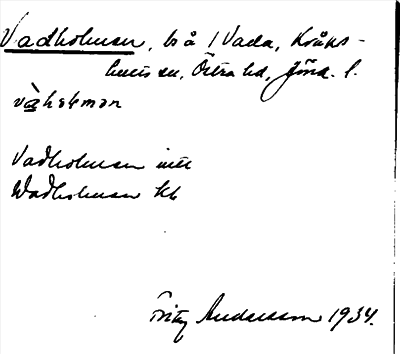 Vadholmen, bå i Vada, Kråks-
hults sn, Östra hd, Jönk. l.
vàhɷlmən
Vadholmen
Wadholmen kb
Fritz Andersson 1934.